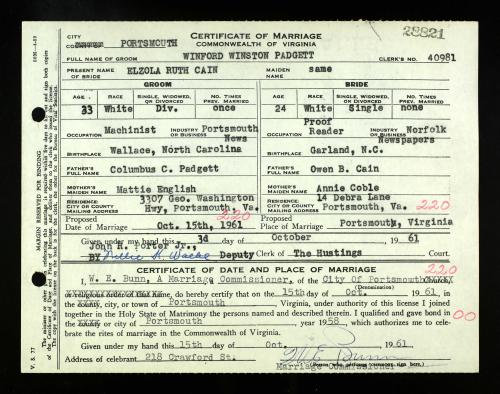 28821
CERTIFICATE OF MARRIAGE
COMMONWEALTH OF VIRGINIA
CITY PORTSMOUTH
FULL NAME OF GROOM WINFORD WINSTON PADGETT CLERK'S NO. 40981
PRESENT NAME OF BRIDE ELZOLA RUTH CAIN MAIDEN NAME same
GROOM BRIDE
AGE RACE SINGLE, WIDOWED, OR DIVORCED NO. TIMES PREV. MARRIED AGE RACE SINGLE, WIDOWED, OR DIVORCED NO. TIMES PREV. MARRIED
33 White Div. once 24 White Single none
OCCUPATION Machinist INDUSTRY OR BUSINESS Portsmouth News OCCUPATION Proof Reader INDUSTRY OR BUSINESS Norfolk Newspapers
BIRTHPLACE Wallace, North Carolina BIRTHPLACE Garland, N.C.
FATHER'S FULL NAME Columbus C. Padgett FATHER'S FULL NAME Owen B. Cain
MOTHER'S MAIDEN NAME Mattie English MOTHER'S MAIDEN NAME Annie Coble
RESIDENCE: CITY OR COUNTY MAILING ADDRESS 3307 Geo. Washington Hwy, Portsmouth, Va. RESIDENCE: CITY OR COUNTY MAILING ADDRESS 14 Debra Lane Portsmouth, Va. 220
220
Proposed Date of Marriage Oct. 15th, 1961 Proposed Place of Marriage Portsmouth, Virginia
Given under my hand this 3d day of October 1961
John R. Porter Jr.,
BY Deputy Clerk of The Hustings Court.
CERTIFICATE OF DATE AND PLACE OF MARRIAGE 220
I, W. E. Bunn, A Marriage Commissioner, of the City Of Portsmouth Church,
(Denomination)
or religious order of that name, do hereby certify that on the 15th day of Oct. 1961, in
the county, city or town of Portsmouth, Virginia, under authority of this license I joined
together in the Holy State of Matrimony the persons named and described therein. I qualified and gave bond in 00
the county or city of Portsmouth, year 1958, which authorizes me to cele-
brate the rites of marriage in the Commonwealth of Virginia.
Given under my hand this 15th day of Oct. 1961
Address of celebrant 218 Crawford St. W E Bunn
(Person who performs ceremony sign here.)
Marriage Commissioner
V. S. 77
MARGIN RESERVED FOR BINDING